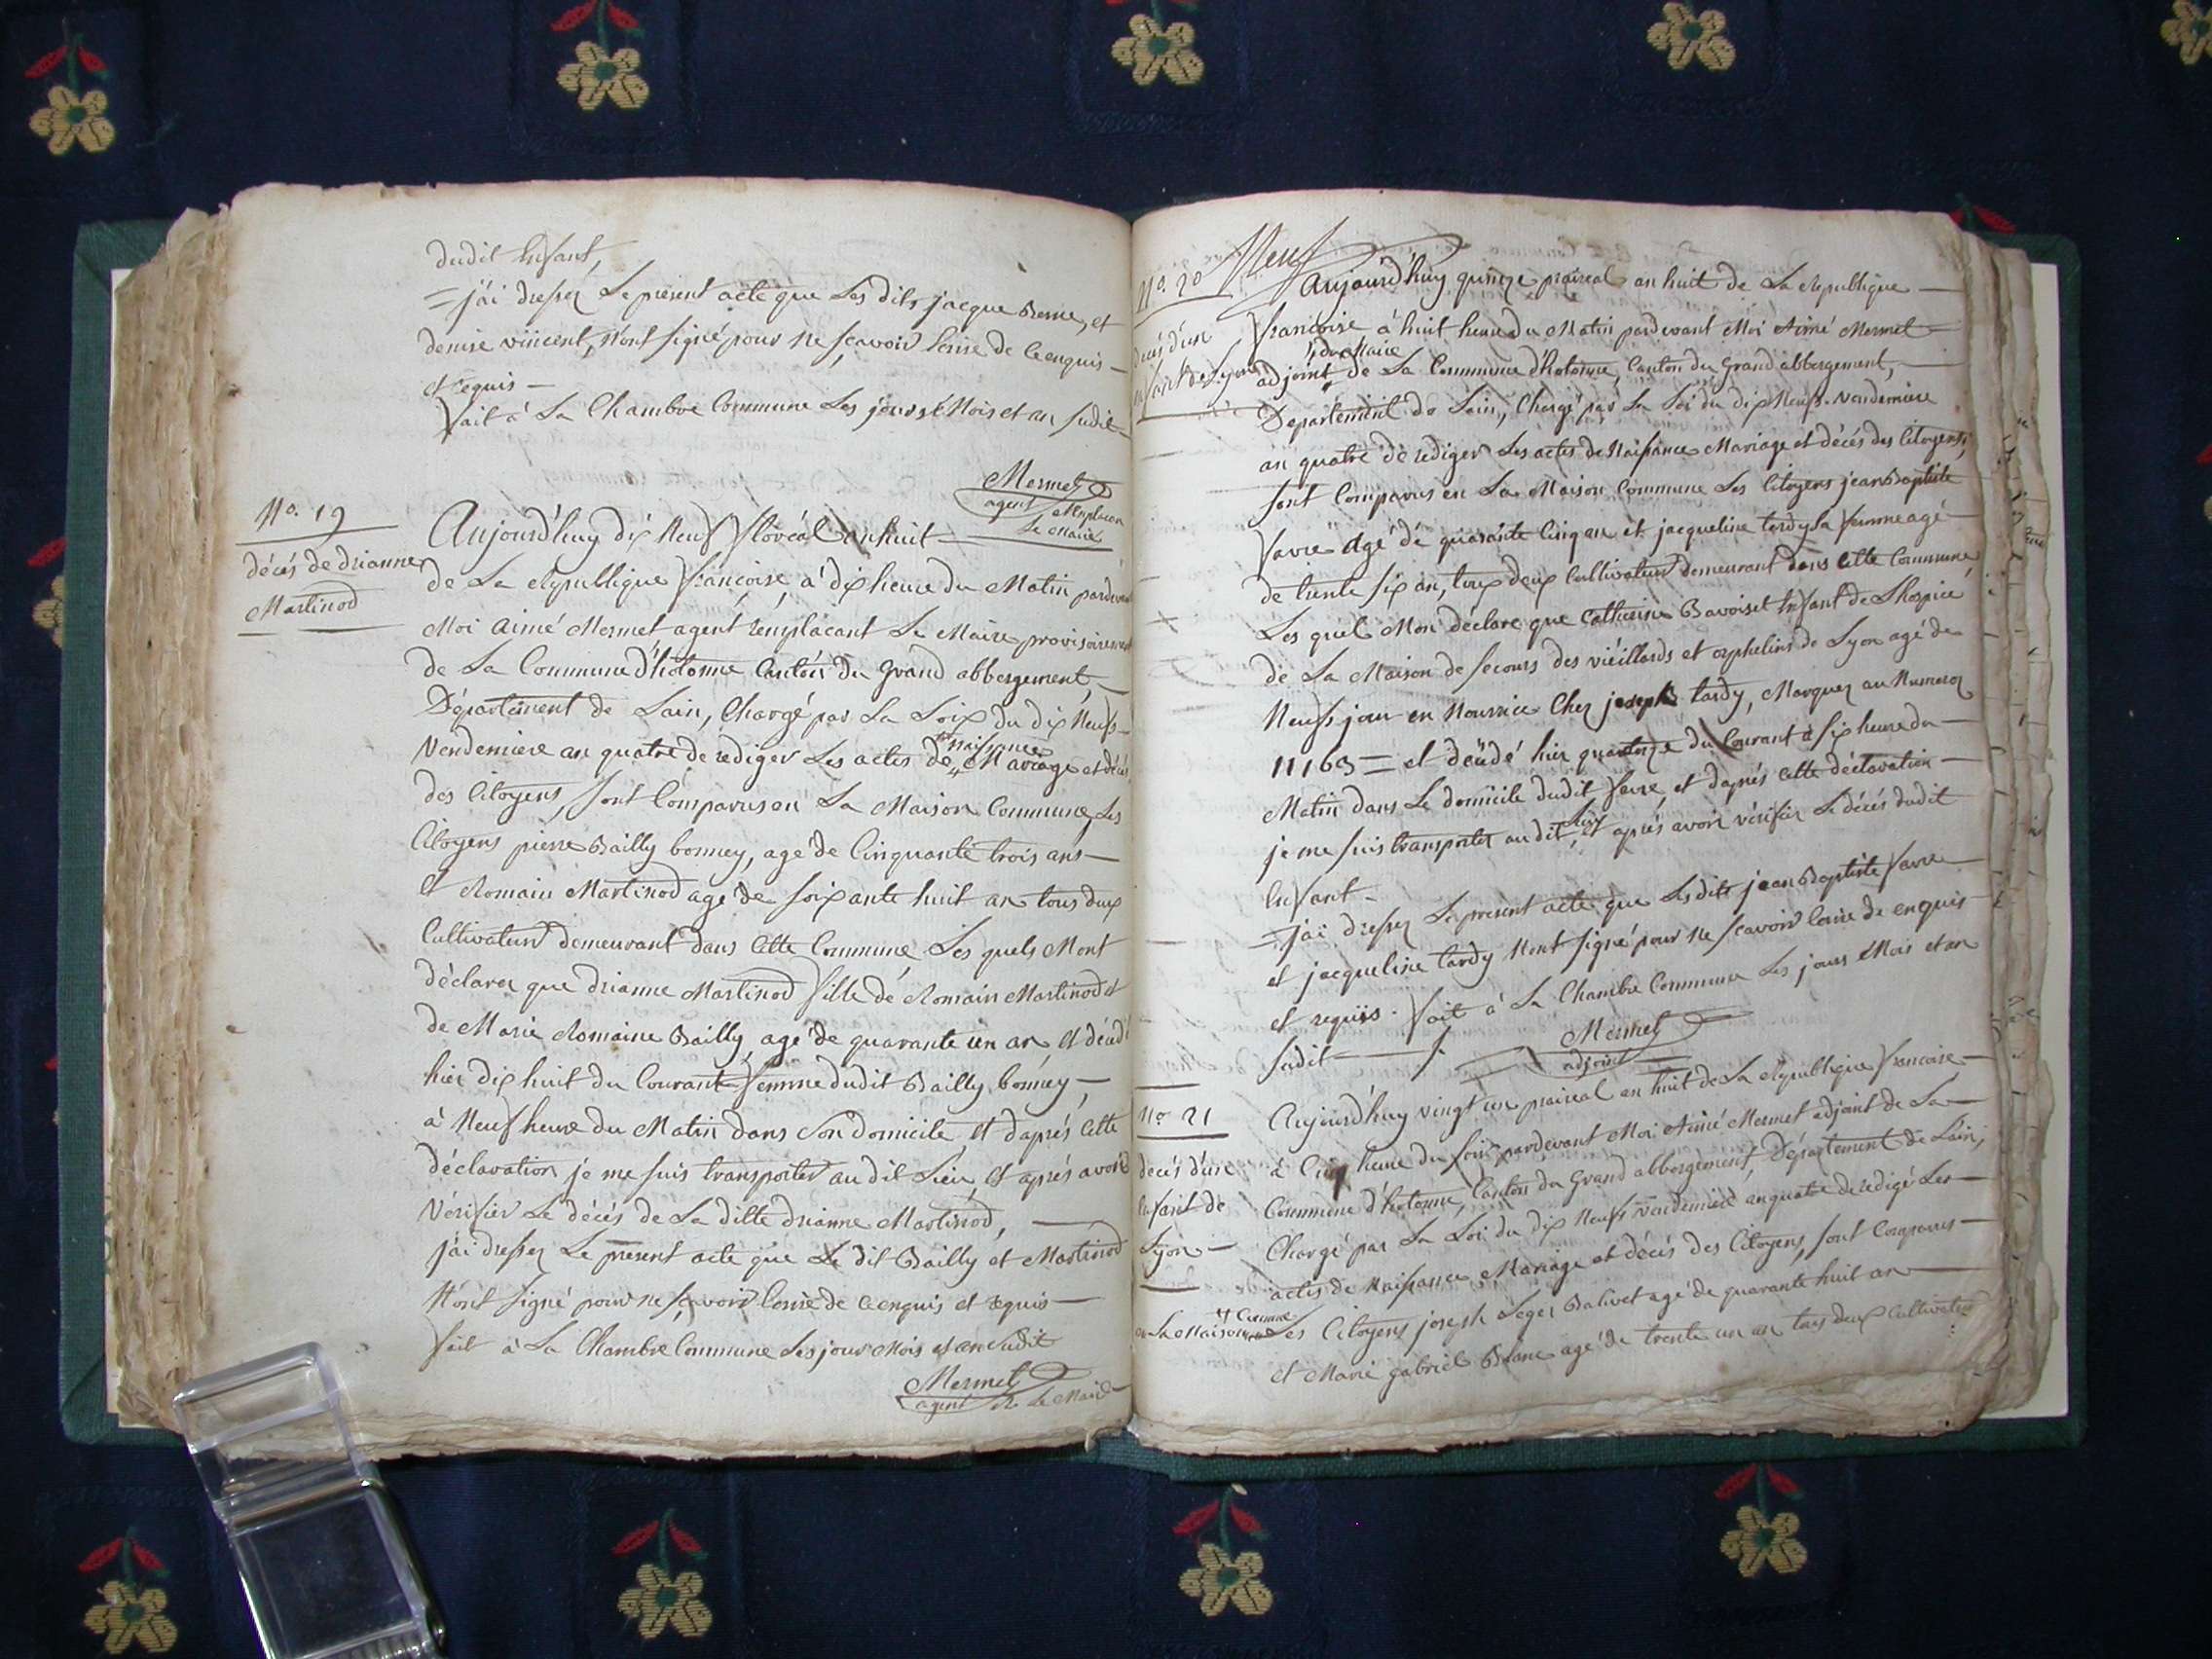 dudit Enfant,
= j'ai dressez Le présent acte que Les dits jacque Berne, et
denise vincent, n'ont signé pour ne scavoir Ecrire de ce enquis —
et requis —
fait à La Chambre Commune Les jours et Mois et an sudit
Mermet
agent Remplacan
Le Maire
No. 19
décés de drianne
Martinod
Aujourd'huy dix Neuf floréal an huit —
de La République françoise, à dix heure du Matin pardevant
Moi aimé Mermet agent remplacant Le Maire provisoirement
de La Commune d'hotonne Canton du Grand abbergement, —
Département de Lain, Chargé par La Loix du dix Neufs —
Vendemiere an quatre de rediger Les actes de naissance Mariage et décés
des Citoyens, sont Comparus en La Maison Commune, Les
Citoyens pierre Bailly bonney, agé de Cinquante trois ans —
et Romain Martinod agé de soixante huit an tous deux
Cultivateur demeurant dans Cette Commune, Les quels Mont
déclarer que drianne Martinod fille de Romain Martinod et
de Marie Romaine Bailly, agé de quarante un an et décédé
hier dix huit du Courant femme dudit Bailly bonney —
à Neuf heure du Matin dans Son domicile et daprés Cette
déclaration je me suis transporter au dit Lieu, et aprés avoir
Vérifier Le décés de La ditte drianne Martinod, —
j'ai dressez Le présent acte que Le dit Bailly et Martinod
N'ont signé pour ne scavoir Ecrire de ce enquis et requis —
fait à La Chambre Commune Les jour Mois et an Sudit
Mermet
agent R. Le Maire
Neuf
No. 20
decés d'un
enfant de Lyon
Aujourd'huy quinze prairéal an huit de La République —
françoise à huit heure du Matin pardevant Moi Aimé Mermet —
adjoint du Maire de La Commune d'hotonne, Canton du Grand abbergement, —
Département de Lain, Chargé par La Loi du dix Neufs Vendemiere
an quatre de rediger Les actes de Naissance Mariage et décés des Citoyens,
sont Comparus en La Maison Commune Les Citoyens jean Baptiste
favre agé de quarante Cinq an et jacqueline tardy sa femme agé —
de trente six an, toux deux Cultivateur demeurant dans Cette Commune,
Les quel Mon déclare que Catherine Bavoiset Enfant de Lhospice
de La Maison de secours des viéillards et orphelins de Lyon agé de
Neufs jour en Nourrice Chez joseph tardy, Marquez au Numeroz
11163 = et décédé hier quatorze du Courant à six heure du —
Matin dans Le domicile dudit favre, et daprés Cette déclaration —
je me suis transporter au dit Lieu, et aprés avoir vérifier Le décés dudit
Enfant —
= j'ai dressez Le présent acte que Les dits jean Baptiste favre —
et jacqueline tardy Nont signé pour ne scavoir Ecrire de enquis
et requis. fait à La Chambre Commune Les jours Mois et an
sudit —
Mermet
adjoint
No 21
decés d'un
enfant de
Lyon —
Aujourd'huy vingt un prairéal an huit de La République francoise —
à Cinq heure du soir pardevant Moi Aimé Mermet adjoint de La —
Commune d'hotonne, Canton du Grand abbergement, Département de Lain,
Chargé par La Loi du dix Neufs vendemiere an quatre de redigé Les —
actes de Naissance Mariage et décés des Citoyens, sont Comparus —
en La Maison Commune Les Citoyens joseph Leger Balivet agé de quarante huit an —
et Marie gabriel Blanc agé de trente un an tous deux Cultivateur